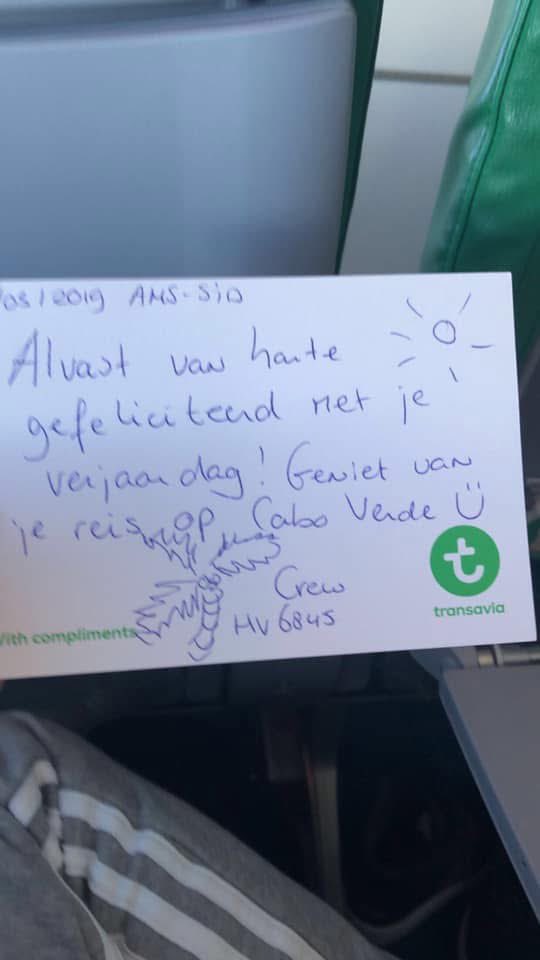 /05/2019 AMS-SID
Alvast van harte
gefeliciteerd met je
verjaardag! Geniet van
je reis op Cabo Verde
Crew
HV6845
With compliments
t
transavia